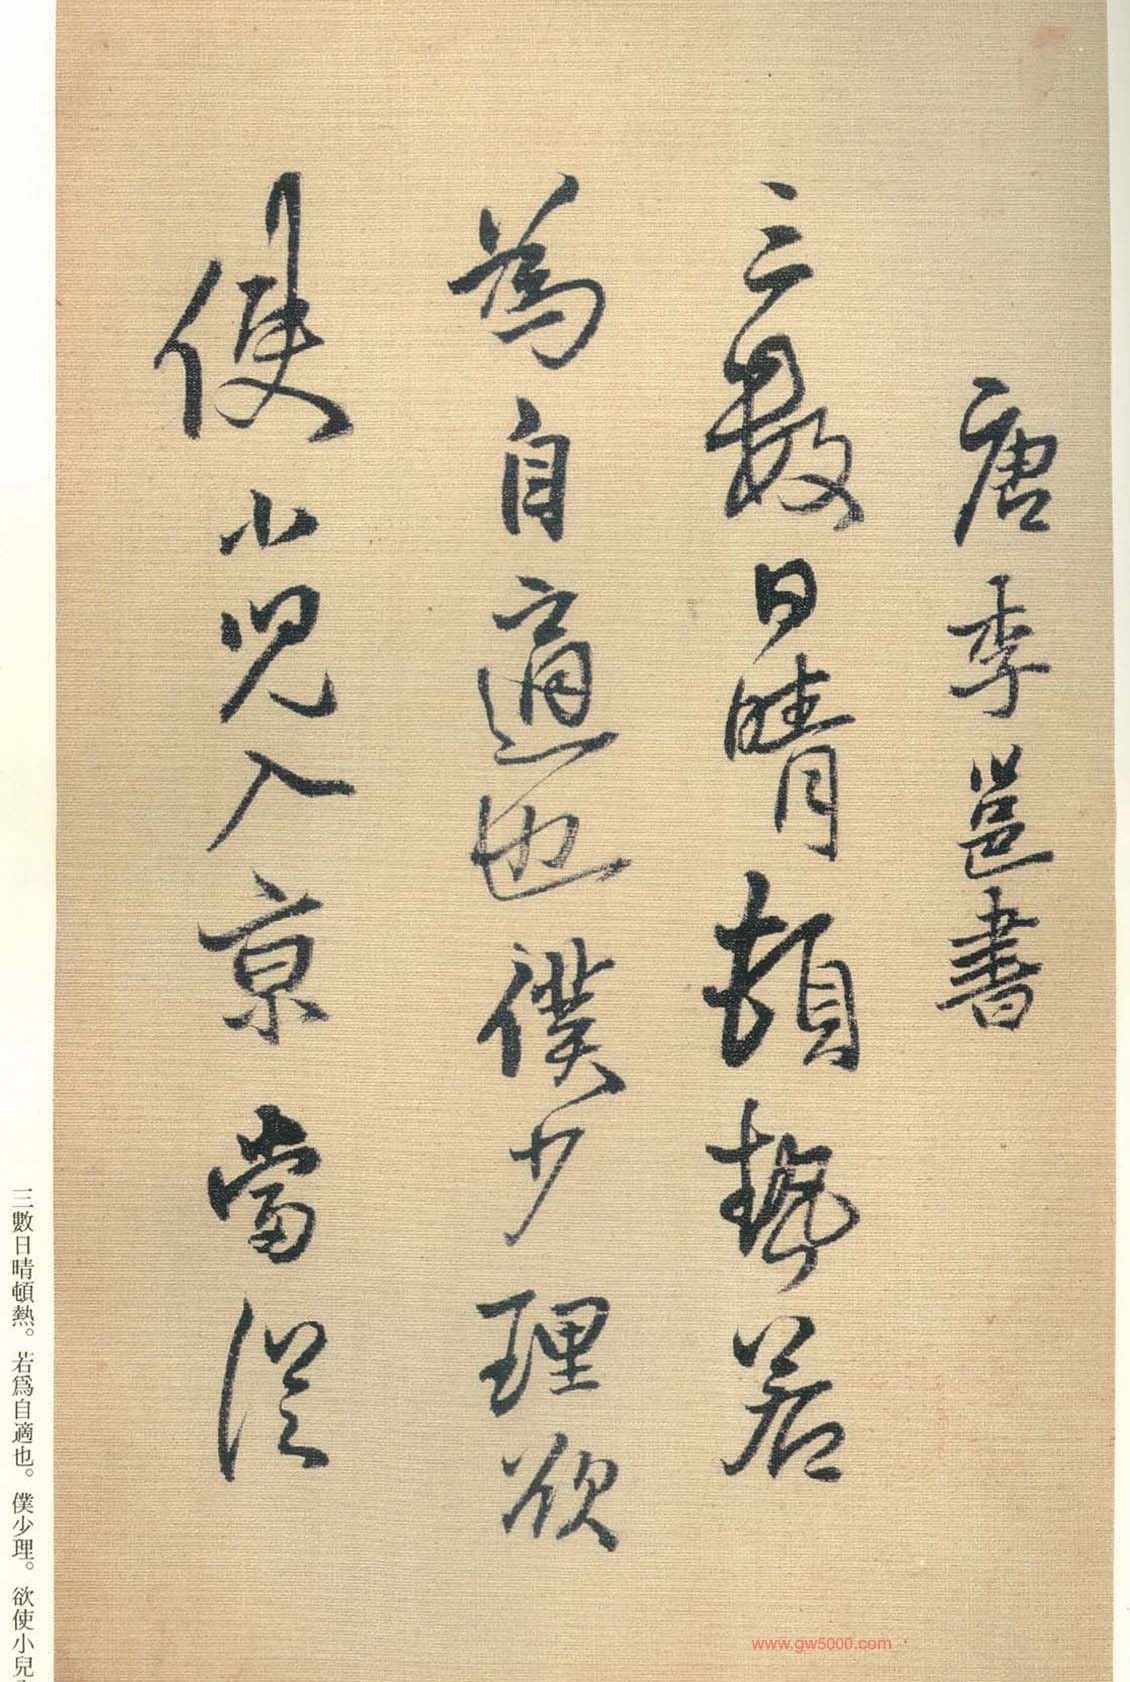 唐李邕書
三數日晴頓熱若
為自適也僕少理欲
使小兒入京當從
三數日晴頓熱。若爲自適也。僕少理。欲使小兒
www.gw5000.com